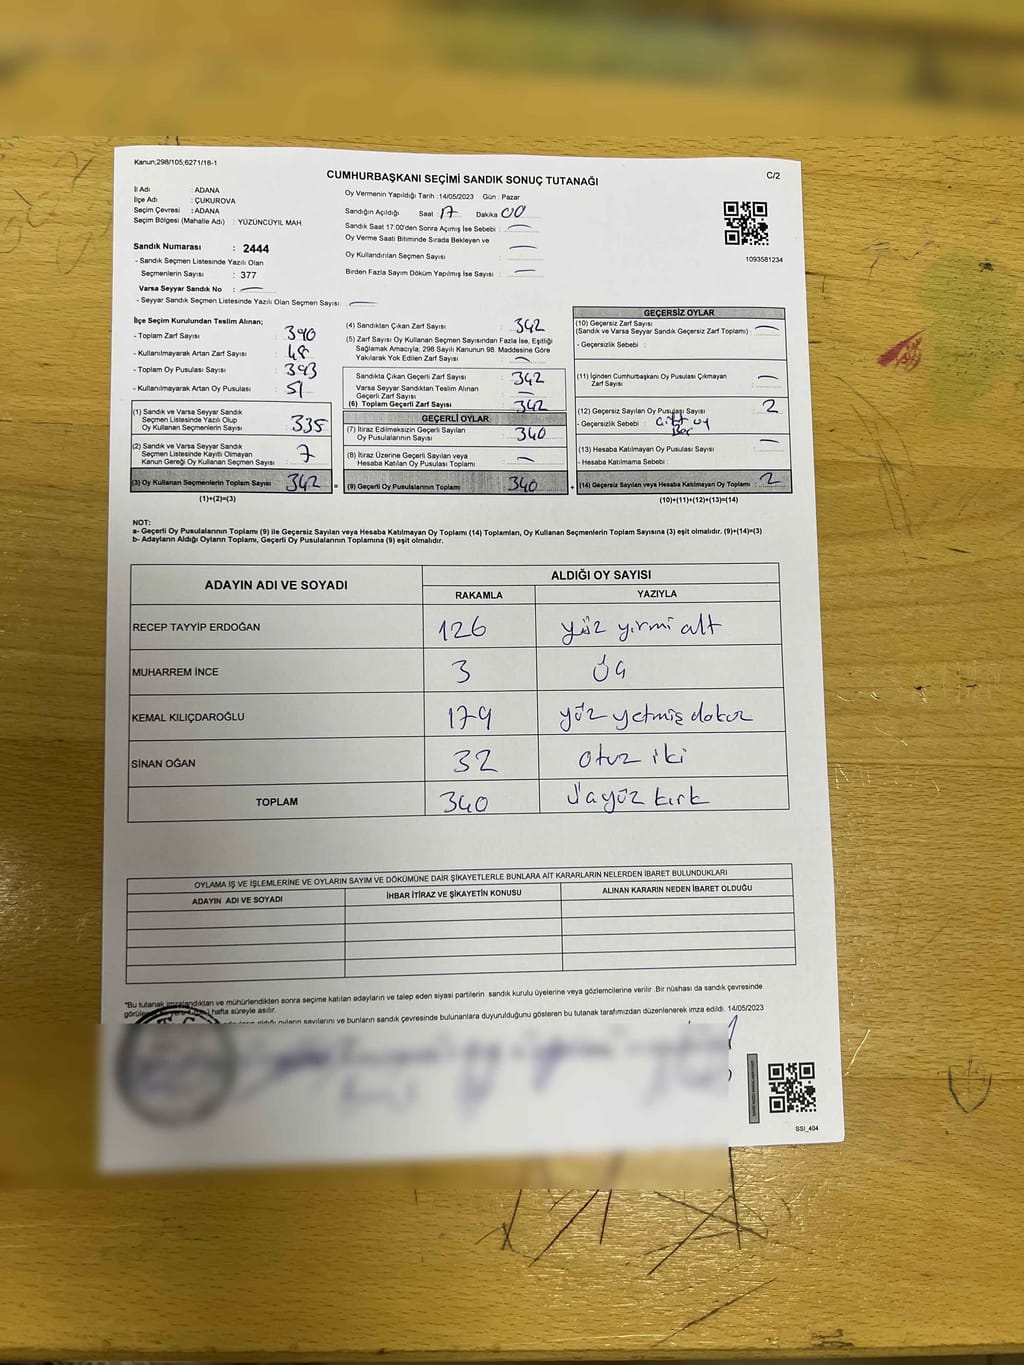 Kanun,298/105;6271/18-1
CUMHURBAŞKANI SEÇİMİ SANDIK SONUÇ TUTANAĞI
C/2
İl Adı : ADANA
İlçe Adı : ÇUKUROVA
Seçim Çevresi : ADANA
Seçim Bölgesi (Mahalle Adı) : YÜZÜNCÜYIL MAH.
Sandık Numarası : 2444
- Sandık Seçmen Listesinde Yazılı Olan
Seçmenlerin Sayısı : 377
Varsa Seyyar Sandık No :
- Seyyar Sandık Seçmen Listesinde Yazılı Olan Seçmen Sayısı :
Oy Vermenin Yapıldığı Tarih : 14/05/2023 Gün : Pazar
Sandığın Açıldığı Saat 17 Dakika 00
Sandık Saat 17.00'den Sonra Açımış İse Sebebi :
Oy Verme Saati Bitiminde Sırada Bekleyen ve
Oy Kullandırılan Seçmen Sayısı :
Birden Fazla Sayım Döküm Yapılmış İse Sayısı :
1093581234
İlçe Seçim Kurulundan Teslim Alınan;
- Toplam Zarf Sayısı : 390
- Kullanılmayarak Artan Zarf Sayısı : 48
- Toplam Oy Pusulası Sayısı : 393
- Kullanılmayarak Artan Oy Pusulası : 51
(1) Sandık ve Varsa Seyyar Sandık
Seçmen Listesinde Yazılı Olup
Oy Kullanan Seçmenlerin Sayısı : 335
(2) Sandık ve Varsa Seyyar Sandık
Seçmen Listesinde Kayıtlı Olmayan
Kanun Gereği Oy Kullanan Seçmen Sayısı : 7
(3) Oy Kullanan Seçmenlerin Toplam Sayısı : 342
(1)+(2)=(3)
(4) Sandıktan Çıkan Zarf Sayısı : 342
(5) Zarf Sayısı Oy Kullanan Seçmen Sayısından Fazla İse, Eşitliği
Sağlamak Amacıyla; 298 Sayılı Kanunun 98. Maddesine Göre
Yakılarak Yok Edilen Zarf Sayısı :
Sandıkla Çıkan Geçerli Zarf Sayısı : 342
Varsa Seyyar Sandıktan Teslim Alınan
Geçerli Zarf Sayısı :
(6) Toplam Geçerli Zarf Sayısı : 342
GEÇERLİ OYLAR
(7) İtiraz Edilmeksizin Geçerli Sayılan
Oy Pusulalarının Sayısı : 340
(8) İtiraz Üzerine Geçerli Sayılan veya
Hesaba Katılan Oy Pusulası Toplamı :
= (9) Geçerli Oy Pusulalarının Toplamı : 340
GEÇERSİZ OYLAR
(10) Geçersiz Zarf Sayısı
(Sandık ve Varsa Seyyar Sandık Geçersiz Zarf Toplamı) :
- Geçersizlik Sebebi :
(11) İçinden Cumhurbaşkanı Oy Pusulası Çıkmayan
Zarf Sayısı :
(12) Geçersiz Sayılan Oy Pusulası Sayısı : 2
- Geçersizlik Sebebi : çift oy
(13) Hesaba Katılmayan Oy Pusulası Sayısı :
- Hesaba Katılmama Sebebi :
+ (14) Geçersiz Sayılan veya Hesaba Katılmayan Oy Toplamı : 2
(10)+(11)+(12)+(13)=(14)
NOT:
a- Geçerli Oy Pusulalarının Toplamı (9) ile Geçersiz Sayılan veya Hesaba Katılmayan Oy Toplamı (14) Toplamları, Oy Kullanan Seçmenlerin Toplam Sayısına (3) eşit olmalıdır. (9)+(14)=(3)
b- Adayların Aldığı Oyların Toplamı, Geçerli Oy Pusulalarının Toplamına (9) eşit olmalıdır.
ADAYIN ADI VE SOYADI ALDIĞI OY SAYISI
RAKAMLA YAZIYLA
RECEP TAYYİP ERDOĞAN 126 yüz yirmi altı
MUHARREM İNCE 3 üç
KEMAL KILIÇDAROĞLU 179 yüz yetmiş dokuz
SİNAN OĞAN 32 otuz iki
TOPLAM 340 üçyüz kırk
OYLAMA İŞ VE İŞLEMLERİNE VE OYLARIN SAYIM VE DÖKÜMÜNE DAİR ŞİKAYETLERLE BUNLARA AİT KARARLARIN NELERDEN İBARET BULUNDUKLARI
ADAYIN ADI VE SOYADI İHBAR İTİRAZ VE ŞİKAYETİN KONUSU ALINAN KARARIN NEDEN İBARET OLDUĞU
*Bu tutanak imzalandıktan ve mühürlendikten sonra seçime katılan adayların ve talep eden siyasi partilerin sandık kurulu üyelerine veya gözlemcilerine verilir .Bir nüshası da sandık çevresinde
hafta süreyle asılır.
aldığı oyların sayılarını ve bunların sandık çevresinde bulunanlara duyurulduğunu gösteren bu tutanak tarafımızdan düzenlenerek imza edildi. 14/05/2023
SSİ_404